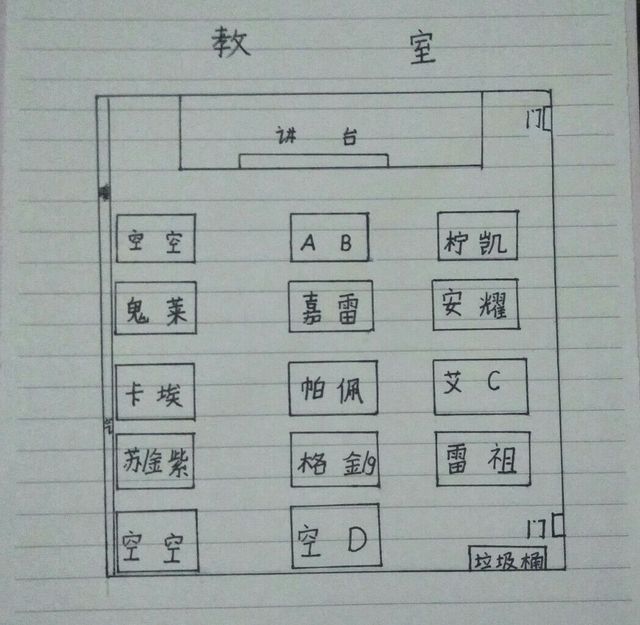 教 室
门
讲 台
空 空 A B 柠 凯
鬼 莱 嘉 雷 安 耀
卡 埃 帕 佩 艾 C
苏/金 紫 格 金/9 雷 祖
空 空 空 D
门
垃圾桶